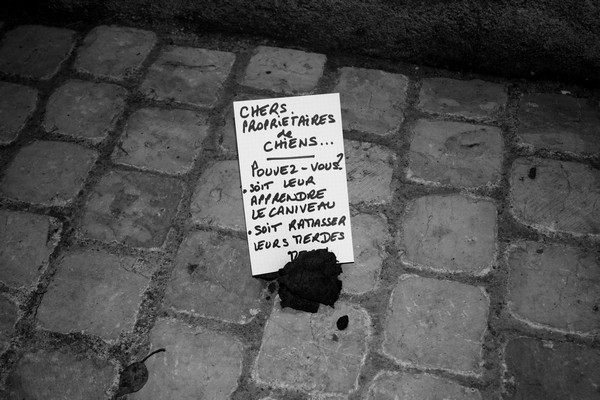 CHERS
PROPRIÉTAIRES
de
CHIENS...
POUVEZ-VOUS?
• SOIT LEUR
APPRENDRE
LE CANIVEAU
• SOIT RAMASSER
LEURS MERDES